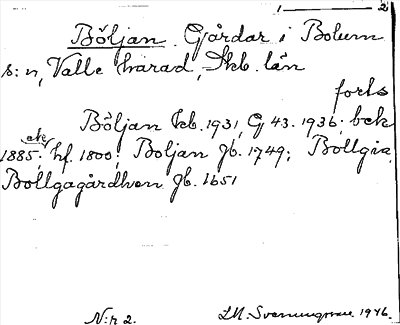 1 — 2
Böljan. Gårdar i Bolum
s:n, Valle härad, Skb. län
forts
Böljan kb. 1931, GJ 43. 1936; bek
1885; hf. 1800; Boljan Jb. 1749; Bollgia,
Bollgagårdhen Jb. 1651
N:r 2. 1946.